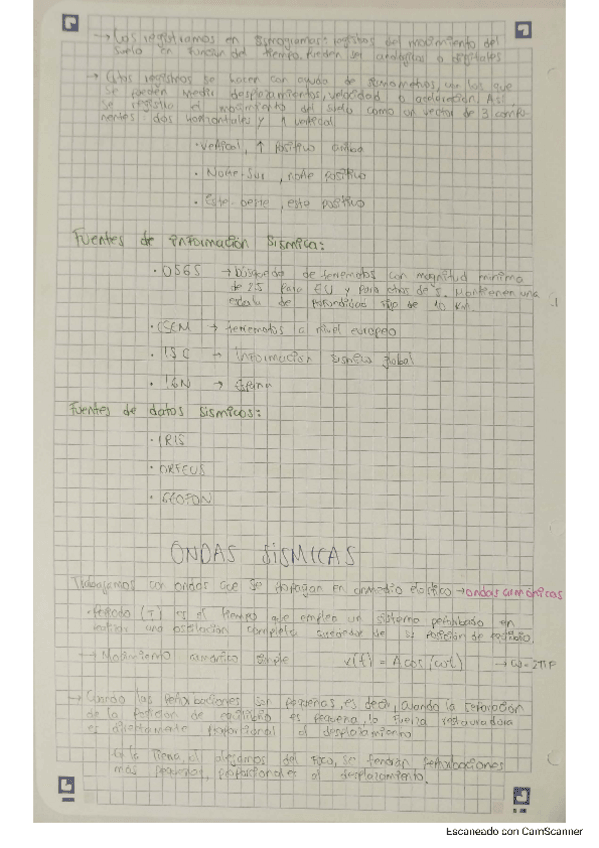 → Los registramos en sismogramas: registros del movimiento del
suelo en función del tiempo. Pueden ser analógicos o digitales
→ Estos registros se hacen con ayuda de sismómetros, con los que
se pueden medir desplazamientos, velocidad o aceleración. Así
se registra el movimiento del suelo como un vector de 3 compo-
nentes: dos horizontales y 1 vertical
· vertical, ↑ positivo arriba
· Norte-Sur, norte positivo
· Este-oeste, este positivo
Fuentes de información sísmica:
· USGS → Búsqueda de terremotos con magnitud mínima
de 2.5 para EU y para otros de 5. Mantienen una
de profundidad fijo de 10 km.
· CSEM → terremotos a nivel europeo
· ISC → información sísmica global
· IGN → España
Fuentes de datos sísmicos:
· IRIS
· ORFEUS
· GEOFON
ONDAS SÍSMICAS
Trabajamos con ondas que se propagan en un medio elástico → ondas armónicas
· Periodo (T) es el tiempo que emplea un sistema perturbado en
realizar una oscilación completa alrededor de su posición de equilibrio.
→ Movimiento armónico simple v(t) = A cos(ωt) → ω=2π/P
→ Cuando las perturbaciones son pequeñas, es decir, cuando la separación
de la posición de equilibrio es pequeña, la fuerza restauradora
es directamente proporcional al desplazamiento
En la Tierra, al alejarnos del foco, se tendrán perturbaciones
más pequeñas, proporcionales al desplazamiento.
Escaneado con CamScanner